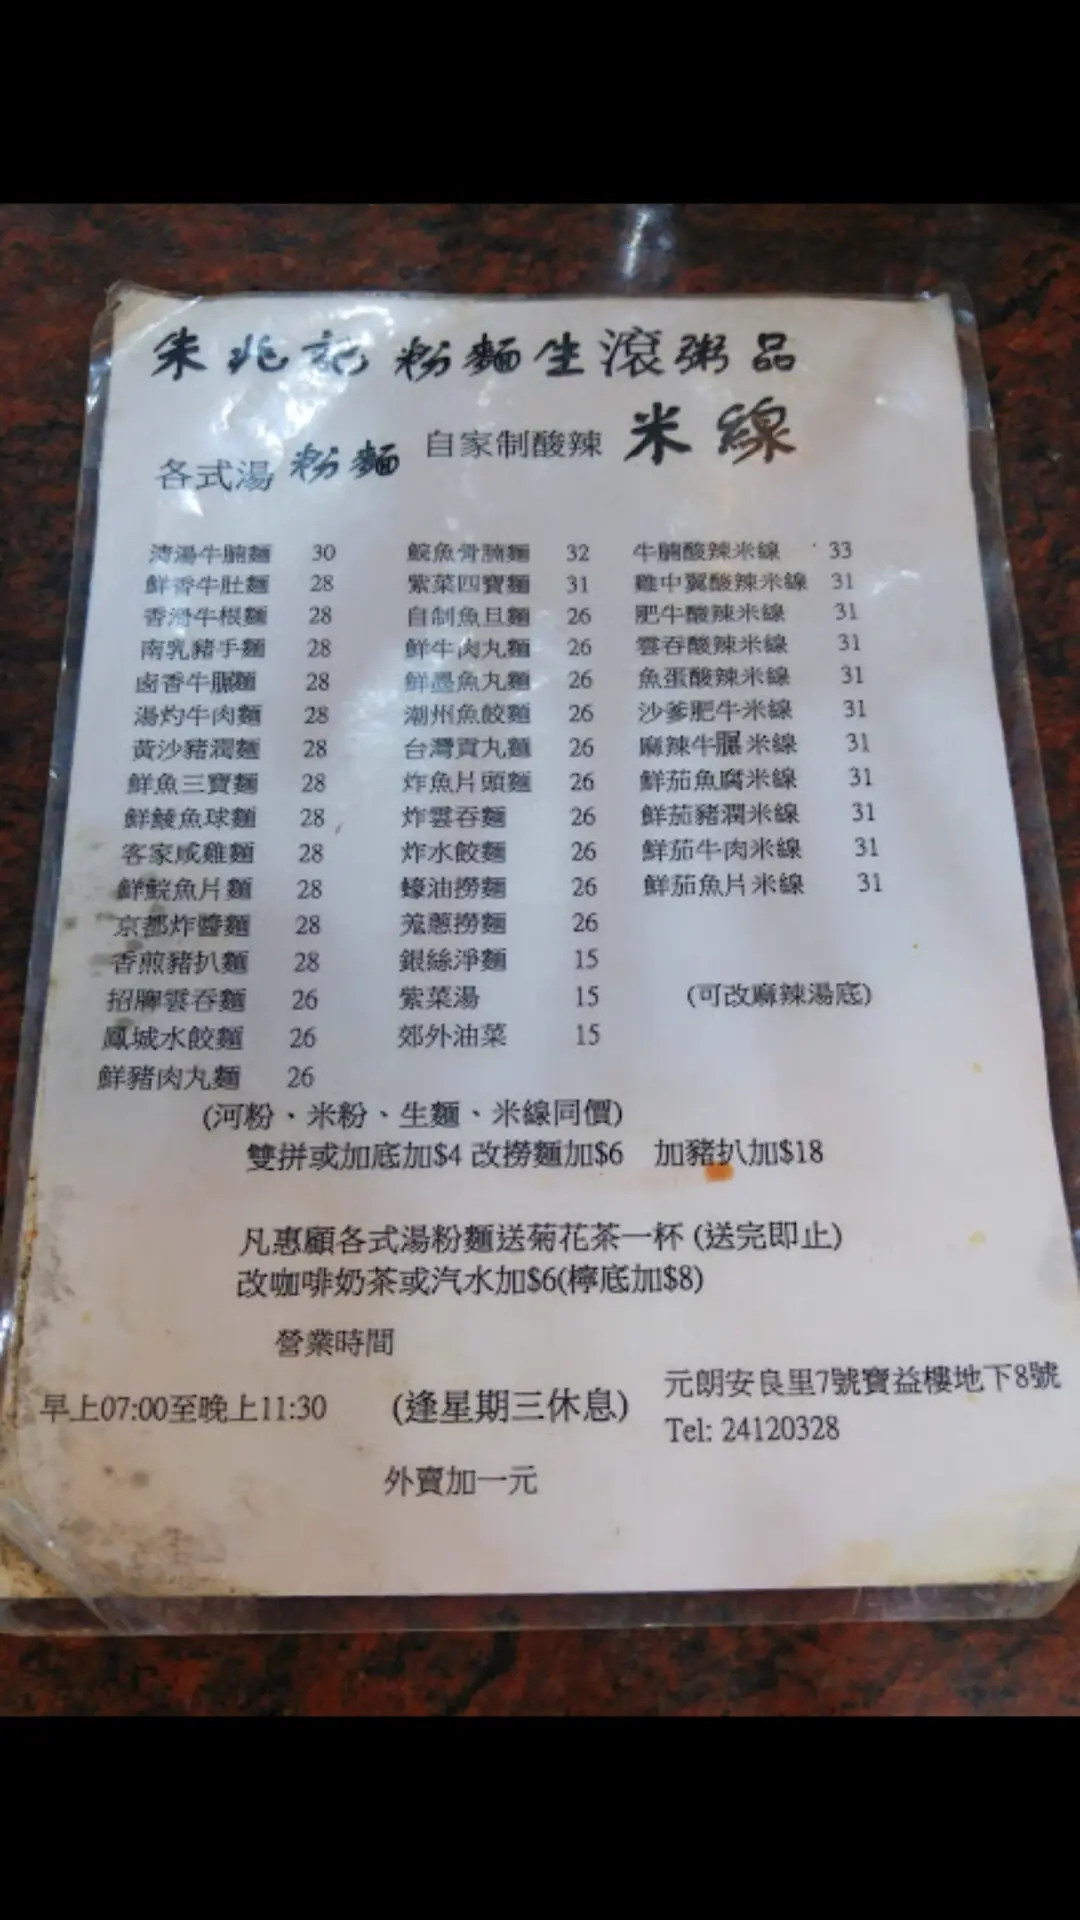 朱兆記粉麵生滾粥品
各式湯粉麵 自家制酸辣米線
清湯牛腩麵 30 鯇魚骨腩麵 32 牛腩酸辣米線 33
鮮香牛肚麵 28 紫菜四寶麵 31 雞中翼酸辣米線 31
香滑牛根麵 28 自制魚旦麵 26 肥牛酸辣米線 31
南乳豬手麵 28 鮮牛肉丸麵 26 雲吞酸辣米線 31
鹵香牛𦟌麵 28 鮮墨魚丸麵 26 魚蛋酸辣米線 31
湯灼牛肉麵 28 潮州魚餃麵 26 沙爹肥牛米線 31
黃沙豬潤麵 28 台灣貢丸麵 26 麻辣牛𦟌米線 31
鮮魚三寶麵 28 炸魚片頭麵 26 鮮茄魚腐米線 31
鮮鯪魚球麵 28 炸雲吞麵 26 鮮茄豬潤米線 31
客家咸雞麵 28 炸水餃麵 26 鮮茄牛肉米線 31
鮮鯇魚片麵 28 蠔油撈麵 26 鮮茄魚片米線 31
京都炸醬麵 28 羗蔥撈麵 26
香煎豬扒麵 28 銀絲淨麵 15
招牌雲吞麵 26 紫菜湯 15 (可改麻辣湯底)
鳳城水餃麵 26 郊外油菜 15
鮮豬肉丸麵 26
(河粉、米粉、生麵、米線同價)
雙拼或加底加$4 改撈麵加$6 加豬扒加$18
凡惠顧各式湯粉麵送菊花茶一杯 (送完即止)
改咖啡奶茶或汽水加$6(檸底加$8)
營業時間
早上07:00至晚上11:30 (逢星期三休息) 元朗安良里7號寶益樓地下8號
Tel: 24120328
外賣加一元